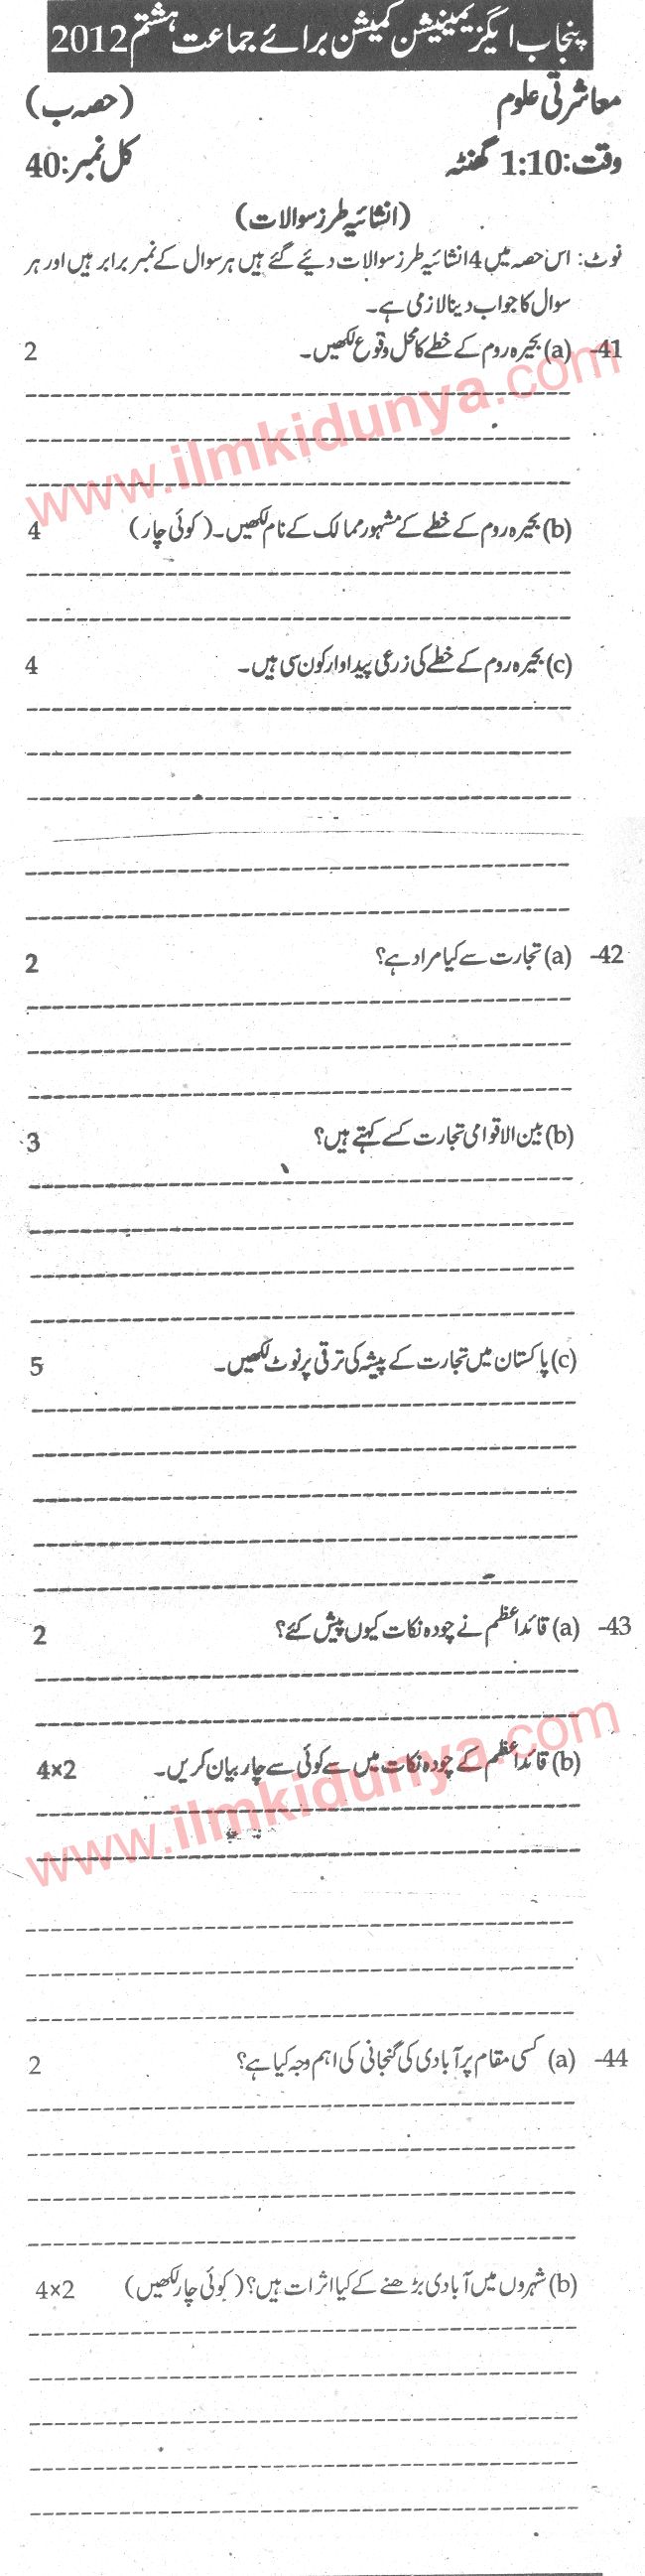 پنجاب ایگزیمینیشن کمیشن برائے جماعت ہشتم 2012
معاشرتی علوم (حصہ ب)
وقت: 1:10 گھنٹہ کل نمبر: 40
(انشائیہ طرز سوالات)
نوٹ: اس حصہ میں 4 انشائیہ طرز سوالات دیئے گئے ہیں ہر سوال کے نمبر برابر ہیں اور ہر
سوال کا جواب دینا لازمی ہے۔
41- (a) بحیرہ روم کے خطے کا محل وقوع لکھیں۔ 2
www.ilmkidunya.com
(b) بحیرہ روم کے خطے کے مشہور ممالک کے نام لکھیں۔ (کوئی چار) 4
(c) بحیرہ روم کے خطے کی زرعی پیداوار کون سی ہیں۔ 4
42- (a) تجارت سے کیا مراد ہے؟ 2
(b) بین الاقوامی تجارت کسے کہتے ہیں؟ 3
(c) پاکستان میں تجارت کے پیشہ کی ترقی پر نوٹ لکھیں۔ 5
43- (a) قائداعظم نے چودہ نکات کیوں پیش کئے؟ 2
(b) قائداعظم کے چودہ نکات میں سے کوئی سے چار بیان کریں۔ 4×2
www.ilmkidunya.com
44- (a) کسی مقام پر آبادی کی گنجانی کی اہم وجہ کیا ہے؟ 2
(b) شہروں میں آبادی بڑھنے کے کیا اثرات ہیں؟ (کوئی چار لکھیں) 4×2